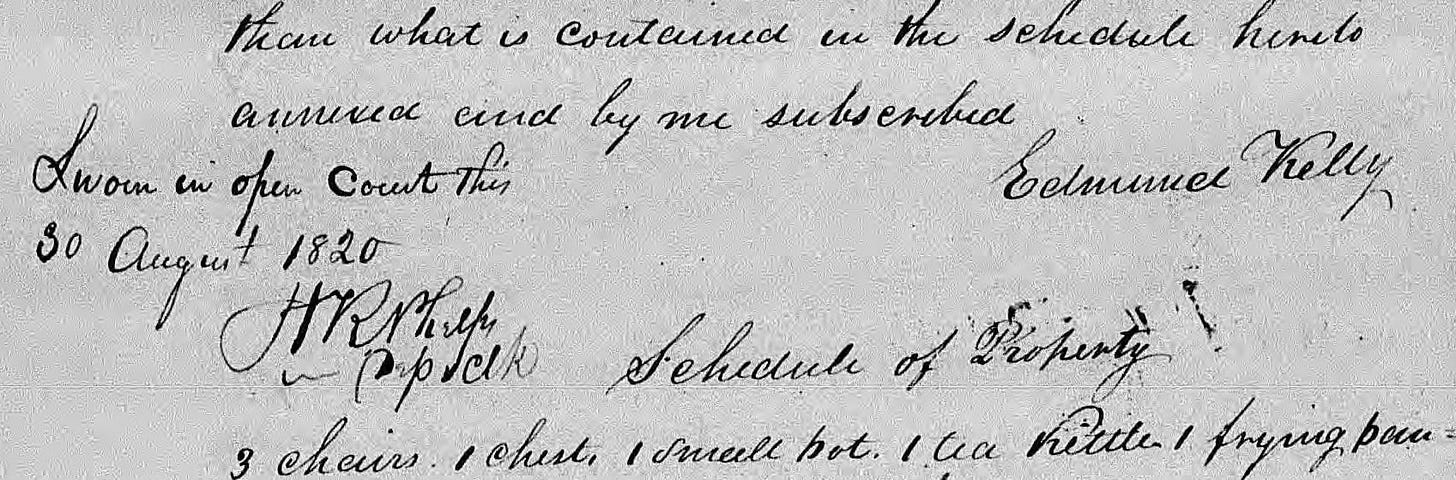 than what is contained in the schedule hereto
annexed and by me subscribed
Edmund Kelly
Sworn in open Court this
30 August 1820
H R Phelps
Dep clk
Schedule of Property
3 chairs. 1 chest, 1 small pot. 1 tea Kettle 1 frying pan